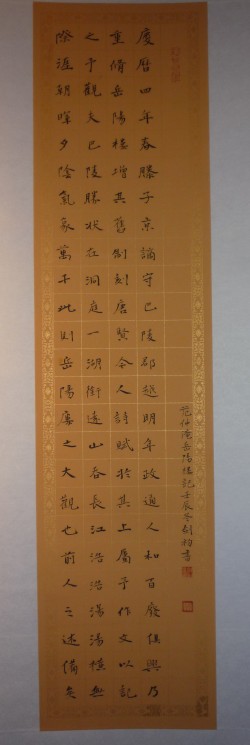 慶曆四年春滕子京謫守巴陵郡越明年政通人和百廢俱興乃
重脩岳陽樓增其舊制刻唐賢今人詩賦於其上屬予作文以記
之予觀夫巴陵勝狀在洞庭一湖銜遠山吞長江浩浩湯湯橫無
際涯朝暉夕陰氣象萬千此則岳陽樓之大觀也前人之述備矣
范仲淹岳陽樓記壬辰冬劉書